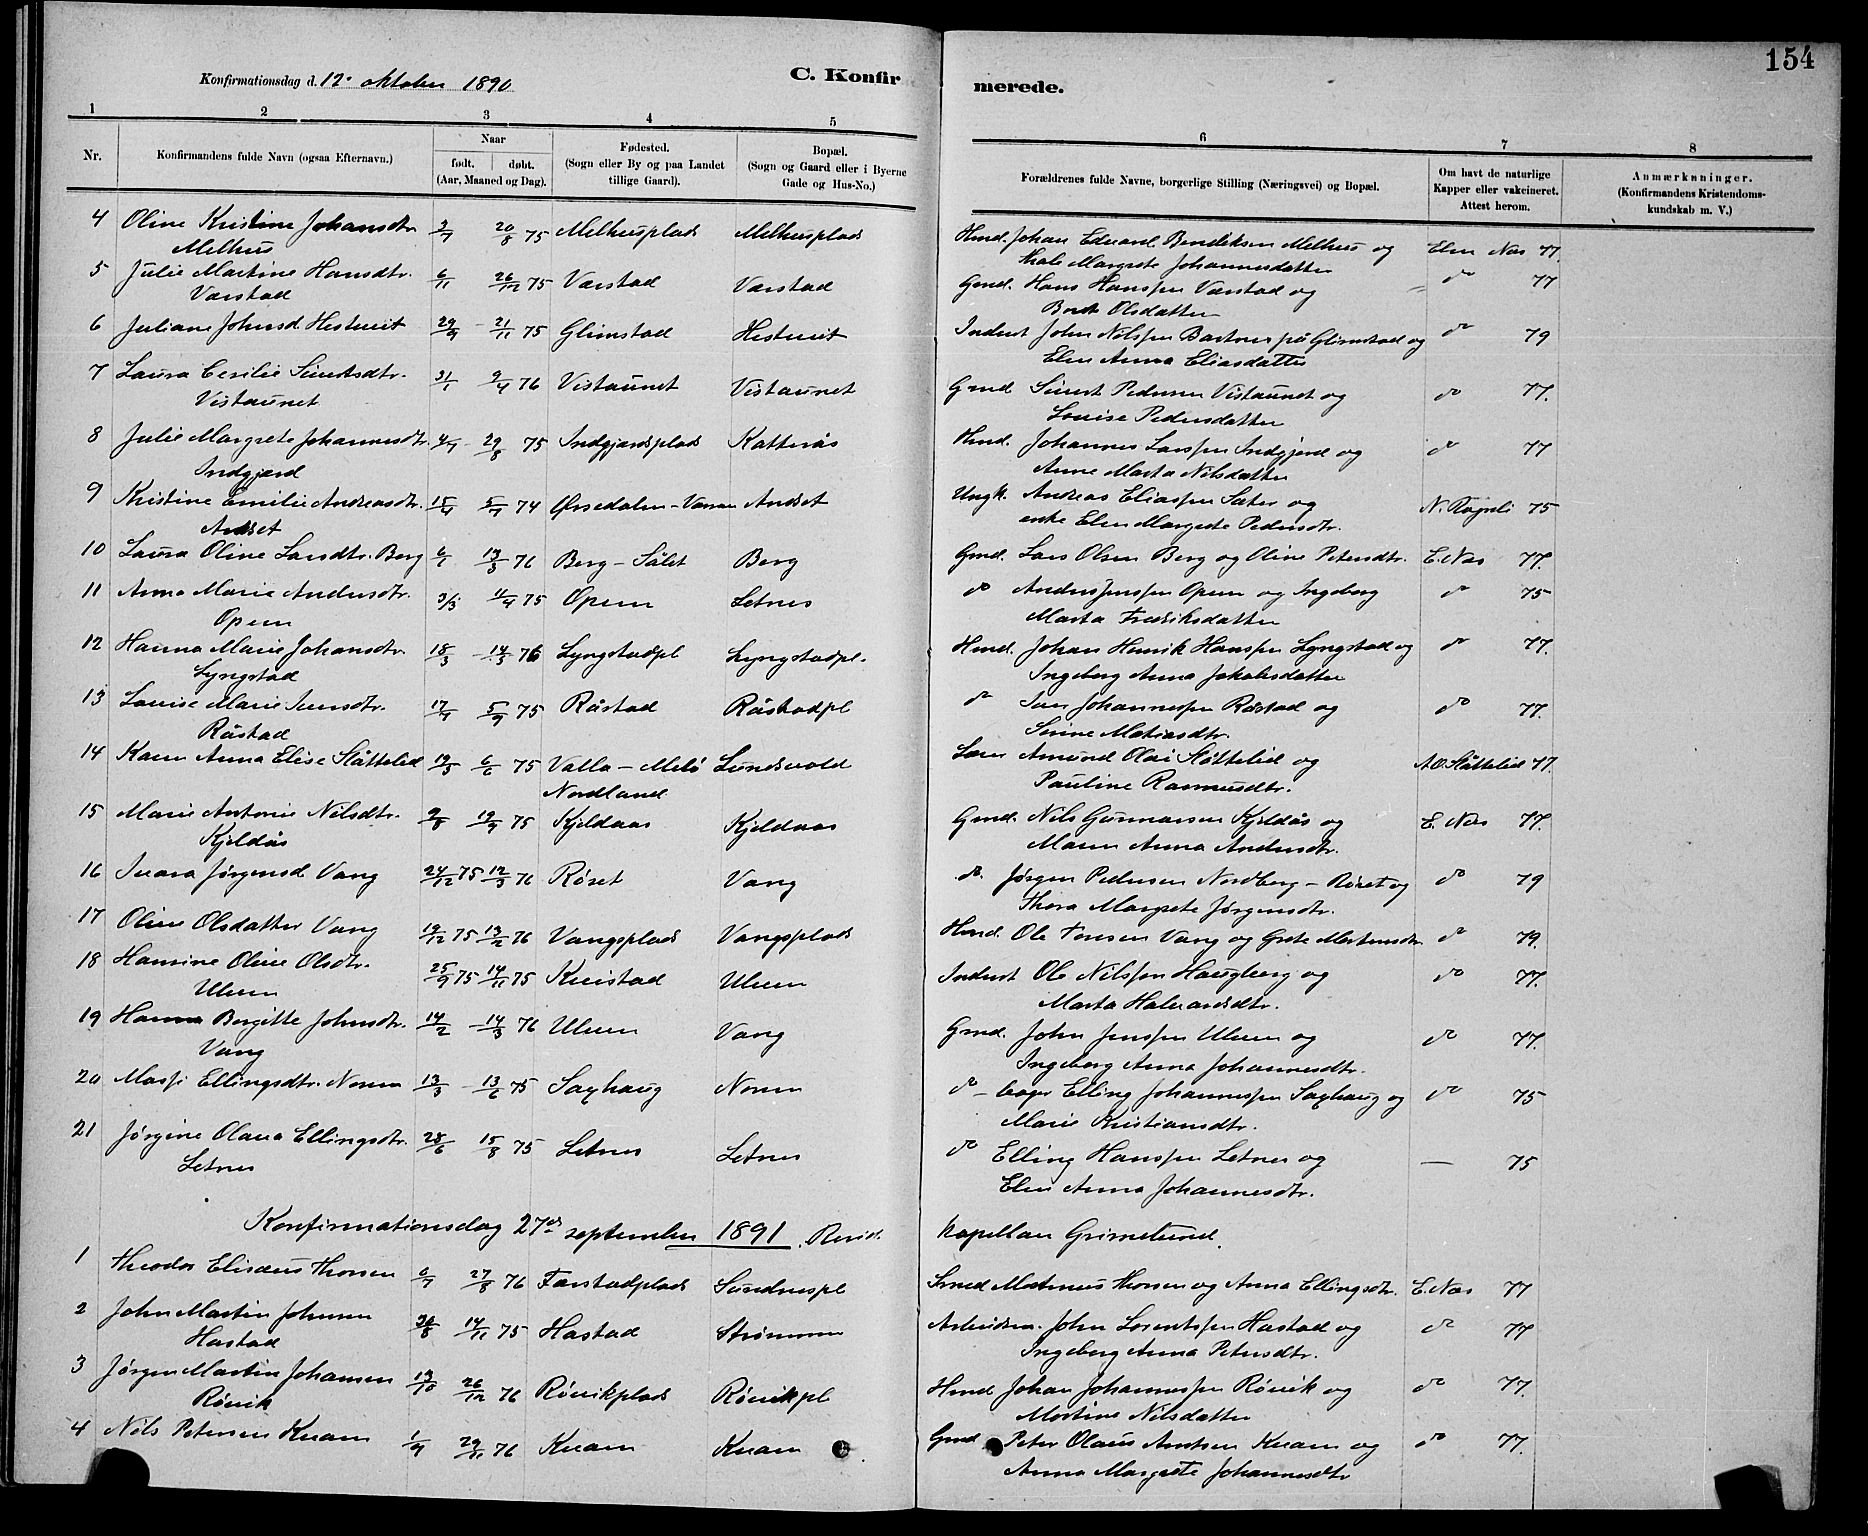 154
Konfirmationsdag d. 12. oktober 1890
C. Konfirmerede.
1 2 3 4 5 6 7 8
Nr.
Konfirmandens fulde Navn (ogsaa Efternavn.)
Naar
født. døbt.
(Aar, Maaned og Dag).
Fødested.
(Sogn eller By og paa Landet
tillige Gaard).
Bopæl.
(Sogn og Gaard eller i Byerne
Gade og Hus-No.)
Forældrenes fulde Navne, borgerlige Stilling (Næringsvei) og Bopæl.
Om havt de naturlige
Kapper eller vakcineret.
Attest herom.
Anmærkninger.
(Konfirmandens Kristendoms-
kundskab m. V.)
4 Oline Kristine Johansdtr. 20/8 75 Melhusplads Melhusplads Hmd. Johan Edvard Bendiksen Melhus og Elen Næs 77.
Melhus Margrete Johannesdatter
5 Julie Martine Hansdtr. 6/11 26/12 75 Værstad Værstad Gmd. Hans Hanssen Værstad og do 77
Værstad Berit Olsdatter
6 Juliane Johnsd Hestveit 29/9 21/11 75 Glimstad Hestveit Inderst John Nilssen Bartnes på Glimstad og do 79
Elen Anna Eliasdatter
7 Laura Cesilie Sivertsdtr. 31/1 9/4 76 Vistaunet Vistaunet Gmd Sivert Pedersen Vistaunet og do 77.
Vistaunet Louise Pedersdatter
8 Julie Margrete Johannesdtr. 4/7 29/8 75 Indgjerdsplads Katterås Hmd. Johannes Larssen Indgjerd og do 77
Indgjerd Anne Marta Nilsdatter
9 Kristine Emilie Andreasdtr. 5/7 74 Ørsedalen Andset Ungk. Andreas Eliassen Sæter og 75
Andset enke Elen Margrete Pedersdtr.
10 Laura Oline Larsdtr. Berg 6/1 19/3 76 Berg - Sålet Berg Gmd. Lars Olsen Berg og Oline Petersdtr. E. Næs 77.
11 Anna Marie Andersdtr. 3/3 4/4 75 Opem Letnes do Anders Jenssen Opem og Ingeborg do 75
Opem Marta Fredriksdatter
12 Hanna Marie Johansdtr. 18/3 - 14/5 76 Lyngstadpl Lyngstadpl. Hmd. Johan Henrik Hanssen Lyngstad og do 77.
Lyngstad Ingeborg Anna Jakobsdatter
13 Louise Marie Iversdtr. 17/7 5/9 75 Råstad Råstadpl do Iver Johannessen Råstad og do 77.
Råstad Sirine Matiasdtr.
14 Karen Anna Elise Slåttelid 19/3 6/6 75 Valla - Melö Sundsvold Amund Olai Slåttelid og A.O. Slåttelid 77.
Nordland Pauline Rasmusdtr.
15 Marie Antonie Nilsdtr. 9/8 19/9 75 Kjeldaas Kjeldaas Gmd. Nils Gunnarsen Kjeldås og E. Næs 77.
Kjeldås Maren Anna Andersdtr.
16 Ivara Jørgensd Vang 24/12 75 12/3 76 Røset Vang do. Jørgen Pedersen Nordberg - Røset og do 79
Thora Margrete Jørgensdtr.
17 Oline Olsdatter Vang 19/12 75 13/2 76 Vangsplads Vangsplads Hmd. Ole Toresen Vang og Grete Mortensdtr. do 79.
18 Hansine Oline Olsdtr. 25/9 75 14/11 75 Kvistad Ulven Inderst Ole Nilssen Haugberg og do 77.
Ulven Marta Halvardsdtr.
19 Hanna Bergitte Johnsdtr. 14/2 - 14/3 76 Ulven Vang Gmd. John Jenssen Ulven og do 77.
Vang Ingeborg Anna Johannesdtr.
20 Massi Ellingsdtr. Norum 13/3 - 13/6 75 Saxhaug Norem do - Elling Johannessen Saxhaug og do 75
Marie Kristiansdtr.
21 Jørgine Olava Ellingsdtr. 28/6 15/8 75 Letnes Letnes do Elling Hanssen Letnes og — 75
Letnes Elen Anna Johannesdtr.
Konfirmationsdag 27de september 1891. Resid. Kapellan Grimelund.
1 Theodor Eliseus Thorsen 6/7 27/8 76 Farstadplads Sundnespl Smed Martinus Thorsen og Anna Ellingsdtr. E. Næs 77
2 John Martin Johnsen 30/8 14/11 75 Hastad Strømmen Arbeidsm. John Lorentssen Hastad og do 77
Hastad Ingeborg Anna Petersdtr.
3 Jørgen Martin Johansen 19/10 26/12 76 Rövikplads Rövikpl Hmd Johan Johannessen Rövik og do 77.
Rövik Martine Nilsdatter
4 Nils Petersen Kvam 1/9 76 Kvam Kvam Gmd Peter Olaus Arntsen Kvam og do 77.
Anna Margrete Johannesdtr